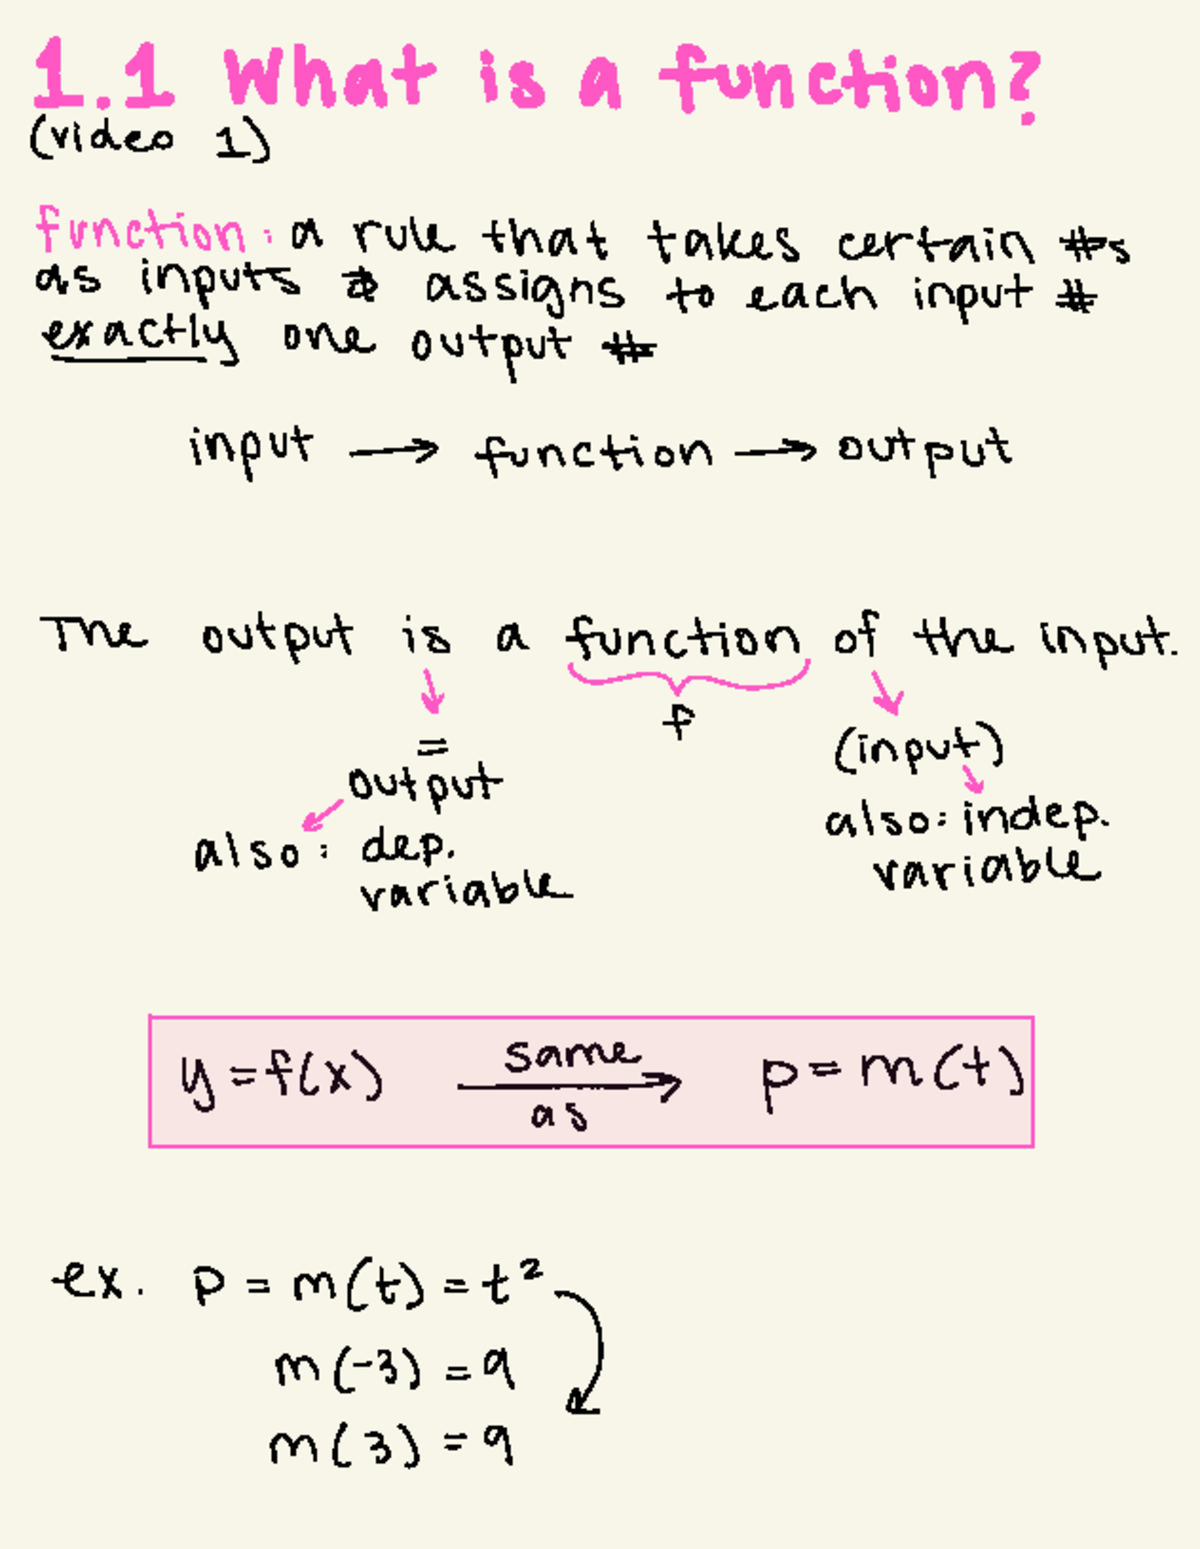 1.1 What is a function?
(video 1)
function: a rule that takes certain #s
as inputs & assigns to each input #
exactly one output #
input → function → output
The output is a function of the input.
f
= (input)
output
also: indep.
also: dep.
variable
variable
y = f(x) same as → p = m(t)
ex. p = m(t) = t²
m(-3) = 9
m(3) = 9